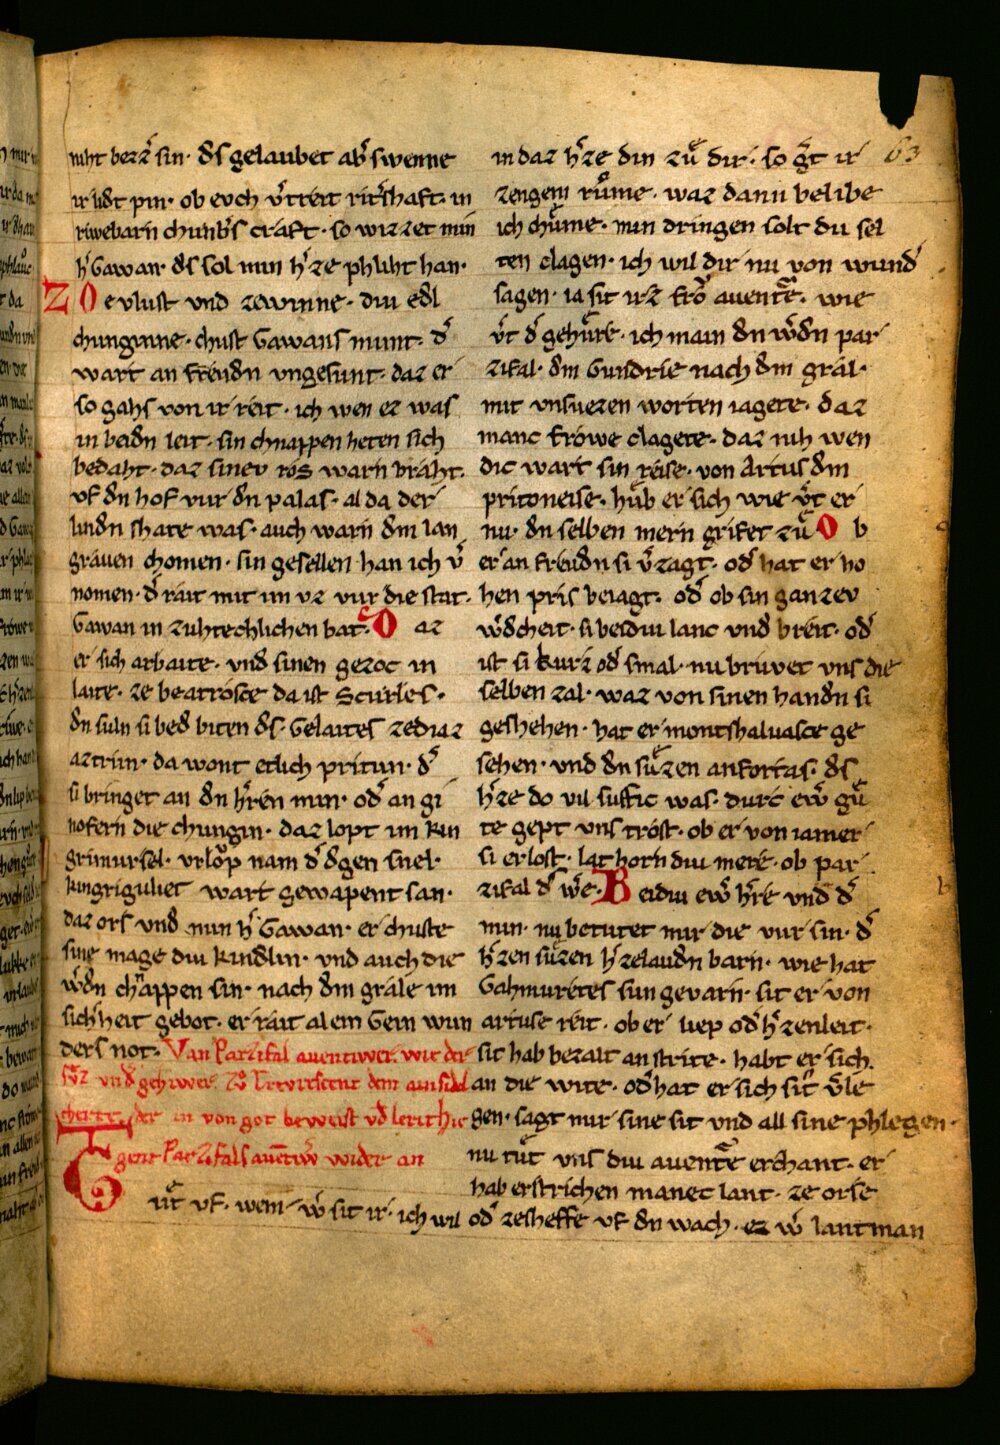 niht bezzͤ sin · ds gelaubet abͤ swenne
ir lidt pin · ob evch vͤtreit ritͤshaft · in
riwebarn chunbͤs craft · so wizzet min
hͤ Gawan · ds sol min hͤze phliht han ·
ZOe vlust vnd zewinne · diu edl
chuniginne · chust Gawans munt · dͤ
wart an freudn vngesunt · daz er
so gahs von ir reit · ich wen ez was
in beidn leit · sin chnappen heten sich
bedaht · daz sinev ros warn braht ·
vf dn hof vur dn palas · al da der
lindn shate was · auch warn dm lan
graven chomen · sin gesellen · han ich vͤ
nomen · dͤ rait mit im vz vur die stat ·
Gawan in zuhtechlichen bat · D az
er sich arbaite · vnd sinen gezoc in
laite · ze beatrosce da ist Scurles ·
dn suln si bed biten ds · Gelaites zediaz
aztrim · da wont etlich pritun · dͤ
si bringet an dn hͤren min · od an gi
nofern die chungin · daz lopt im kin
grimursel · vrloͮp nam dͤ dgen snel ·
kingriguliet wart gewapent san ·
daz ors vnd min hͤ Gawan · er chuste
sine mage diu kindlin · vnd auch die
wͤdn chnappen sin · nach dm grale im
sichͤheit gebot · er rait al ein Gein wun
ders not · Van Parzifal auentiwer wie der
svͤz vnd gehiwer zvͦ Treverscent dem ainsidel
cherte der in von got beweist vnd lert hie
gent Parzifals auentͤiwͤ wider an
Tuͦt vf · wem · wͤ sit ir · ich wil
in daz hͤze din zuͦ dir · so gͤt ir
zengem ruͦme · waz dann belibe
ich chuͦme · min dringen solt du sel
ten clagen · ich wil dir nu von wundͤ
sagen · ia sit irz froͮ auentͤe · wie
vͤt dͤ gehuͤre · ich main dn wͤdn par
zifal · dm Gundrie nach dm gral ·
mit vnsuezen worten iagete · daz
manc frowe clagete · daz nih wen
dic wart sin reise · von Artus dm
pritoneise · huͦb er sich wie vͤt er
nu · dn selben mern grifet zuͦ O b
er an freudn si vͤzagt · odͤ hat er ho
hen pris beiagt · odͤ ob sin ganzev
wͤdcheit · si beidiu lanc vnd breit · odͤ
ist si kurz odͤ smal · nu bruvet vns die
selben zal · waz von sinen handn si
geshehen · hat er montshaluasce ge
sehen · vnd dn suͤzen anfortas · ds
hͤze do vil suftic was · durc ewͤ guͤ
te gept vns trost · ob er von iamer
si erlost · lat horn diu mere · ob par
zifal dͤ wͤe · B eidiu ewͤ hͤre vnd dͤ
min · nu betutet mir die vur sin · dͤ
hͤzen suͤzen hͤzelaudn barn · wie hat
Gahmuretes sun gevarn · sit er von
artuse reit · ob er liep odͤ hͤzenleit ·
sit hab bezalt an strite · habt er sich
an die wite · odͤ hat er sich sit vͤle
gen · sagt mir sine sit vnd all sine phlegen ·
nu tuͦt vns diu auentͤe erchant · er
hab erstrichen manec lant · ze orse
odͤ zesheffe vf dn wach · ez wͤ lantman